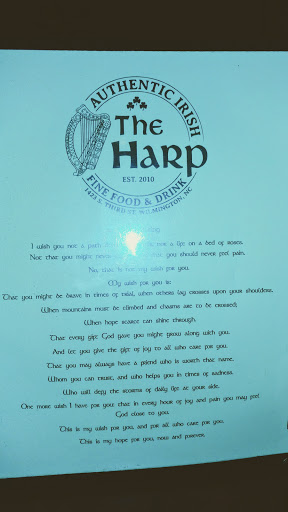 AUTHENTIC IRISH
The
Harp
EST. 2010
FINE FOOD & DRINK
1423 S. THIRD ST. WILMINGTON, NC
I wish you not a path a life on a bed of roses.
Not that you might never you should never feel pain.
No, that is not my wish for you.
My wish for you is:
That you might be brave in times of trial, when others lay crosses upon your shoulders.
When mountains must be climbed and chasms are to be crossed;
When hope scarce can shine through.
That every gift God gave you might grow along with you.
And let you give the gift of joy to all who care for you.
That you may always have a friend who is worth that name.
Whom you can trust, and who helps you in times of sadness.
Who will defy the storms of daily life at your side.
One more wish I have for you: that in every hour of joy and pain you may feel
God close to you.
This is my wish for you, and for all who care for you.
This is my hope for you, now and forever.